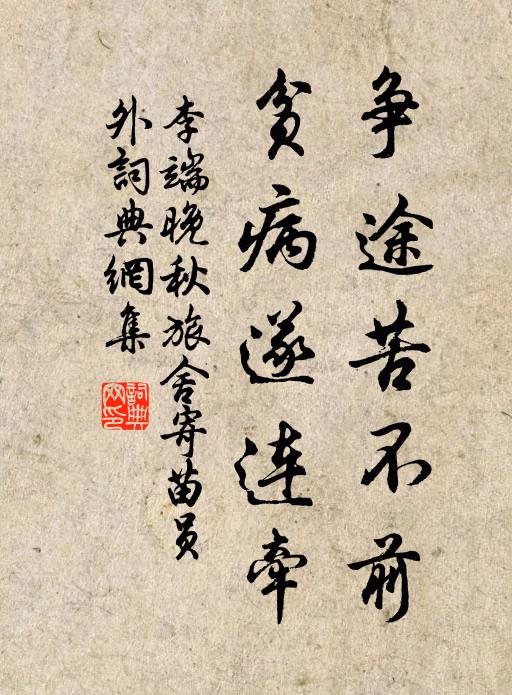 争途苦不前
貧病遂連牽
李端晚秋旅舍寄苗員
外詞典網集
詞典
网印